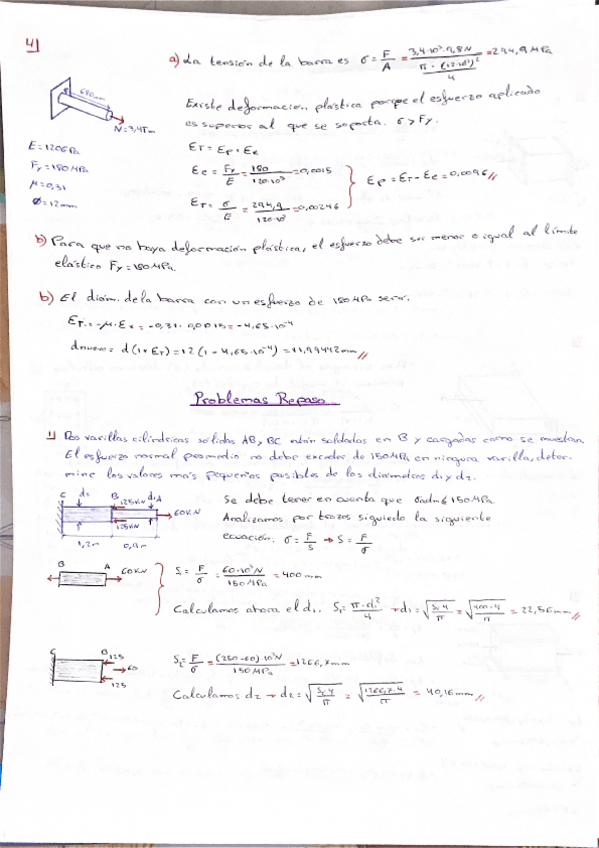 4)
a) La tensión de la barra es σ = F/A = 3,4·10³·9,8N / (π·(12·10⁻³)²/4) = 294,9 MPa
600mm
N=3,4Tm
Existe deformación plástica porque el esfuerzo aplicado
es superior al que se soporta. σ > Fy.
E=120GPa
Fy=180MPa
μ=0,31
Ø=12mm
ET = Ep + Ee
Ee = Fy/E = 180/120·10³ = 0,0015
ET = σ/E = 294,9/120·10³ = 0,00246
Ep = ET - Ee = 0,0096
b) Para que no haya deformación plástica, el esfuerzo debe ser menor o igual al límite
elástico Fy = 180 MPa.
b) El diám. de la barra con un esfuerzo de 180 MPa será:
ET = -μ·Ex = -0,31·0,0015 = -4,65·10⁻⁴
dnuevo = d(1+ET) = 12(1-4,65·10⁻⁴) = 11,99442mm
Problemas Repaso
1) Dos varillas cilíndricas sólidas AB y BC están soldadas en B y cargadas como se muestran.
El esfuerzo normal promedio no debe exceder de 150MPa en ninguna varilla, deter-
mine los valores más pequeños posibles de los diámetros d1 y d2.
C d2 B d1 A
125KN
60KN
125KN
1,2m 0,9m
Se debe tener en cuenta que σadm ≤ 150MPa.
Analizamos por trozos siguiedo la siguiente
ecuación: σ = F/S → S = F/σ
B A 60KN
S1 = F/σ = 60·10³N/150MPa = 400mm
Calculamos ahora el d1. S1 = π·d1²/4 → d1 = √(S1·4/π) = √(400·4/π) = 22,56mm
C B 125
60
125
S2 = F/σ = (250-60)·10³N/150MPa = 1266,7mm
Calculamos d2 → d2 = √(S2·4/π) = √(1266,7·4/π) = 40,16mm